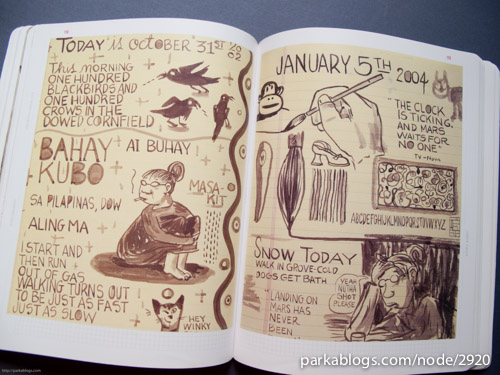 TODAY is OCTOBER 31ST 2002
This MORNING
ONE HUNDRED
BLACKBIRDS AND
ONE HUNDRED
CROWS IN THE
BOWED CORNFIELD
BAHAY
KUBO
AT BUHAY
SA PILAPINAS, DOW
ALING MA
MASA-
KIT
I START AND
THEN RUN
OUT OF GAS
WALKING TURNS OUT
TO BE JUST AS FAST
JUST AS SLOW
HEY
WINKY
JANUARY 5TH
2004
"THE CLOCK
IS TICKING,
AND MARS
WAITS FOR
NO ONE"
ABCDEFGHIJKLMNOPQRSTUVWXYZ
SNOW TODAY
WALK IN GROVE-COLD
DOGS GET BATH
LANDING ON
MARS HAS
NEVER
BEEN
YEAH
NUTHA
SHOT
PLEASE
parkablogs.com/node/2920